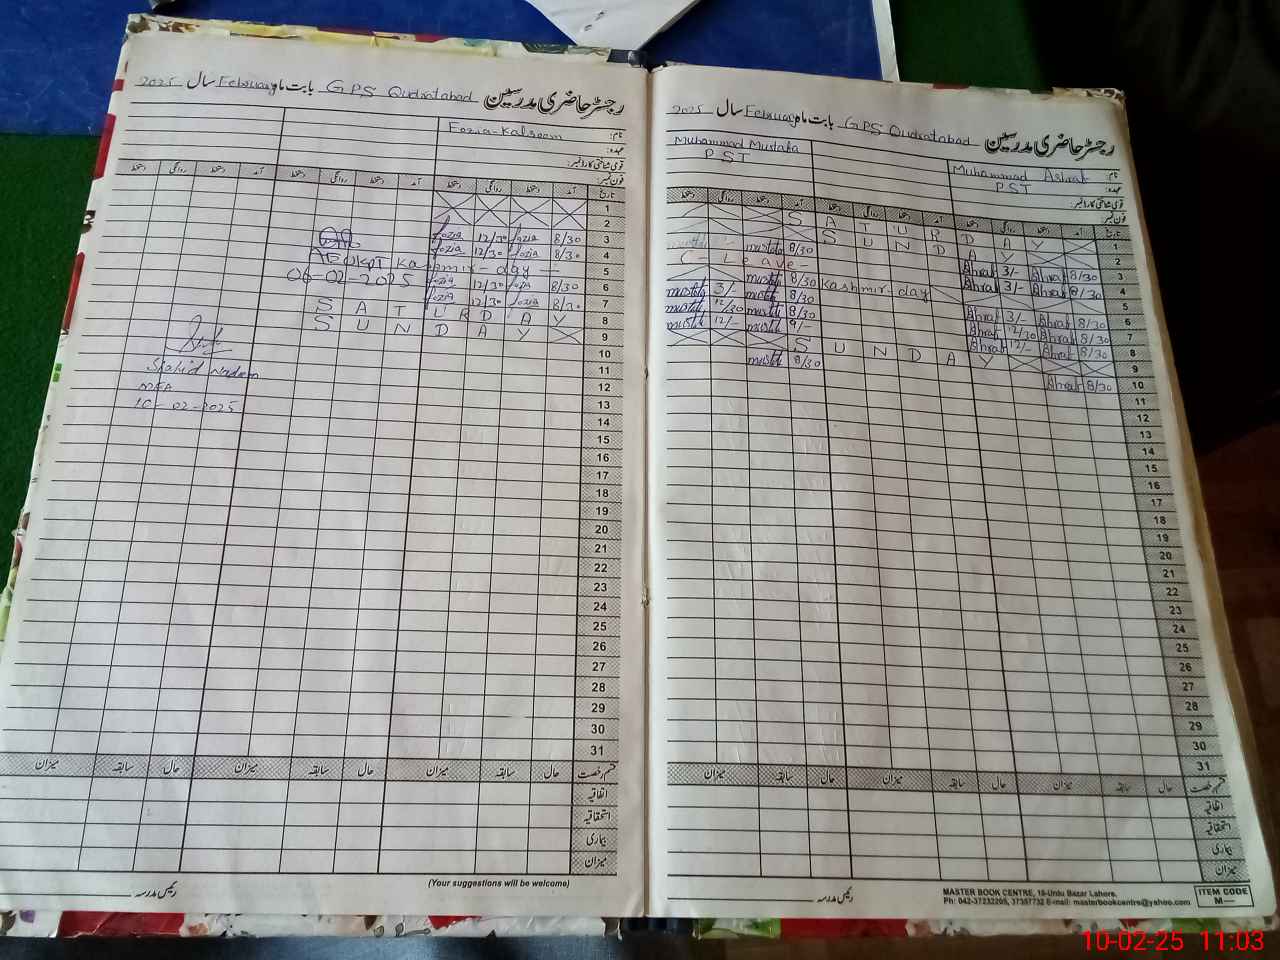 رجسٹر حاضری مدرسین GPS Qudratabad بابت ماہ February سال 2025
نام: Fozia-Kalseem
عہدہ:
قومی شناختی کارڈ نمبر:
فون نمبر:
تاریخ آمد دستخط روانگی دستخط آمد دستخط روانگی دستخط آمد دستخط روانگی دستخط
1
2
3 8/30 fozia 12/30 fozia
4 8/30 fozia 12/30 fozia
5 Kashmir-day
6 8/30 fozia 12/30 fozia 06-02-2025
7 8/30 fozia 12/30 fozia
8 SATURDAY
9 SUNDAY
10
11 Shahid Nadeem
12 MEA
13 10-02-2025
14
15
16
17
18
19
20
21
22
23
24
25
26
27
28
29
30
31
قسم رخصت حال سابقہ میزان حال سابقہ میزان حال سابقہ میزان
اتفاقیہ
استحقاقیہ
بیماری
میزان
(Your suggestions will be welcome)
رئیس مدرسہ
رجسٹر حاضری مدرسین GPS Qudratabad بابت ماہ February سال 2025
نام: Muhammad Ashraf Muhammad Mustafa
عہدہ: PST PST
قومی شناختی کارڈ نمبر:
فون نمبر:
تاریخ آمد دستخط روانگی دستخط آمد دستخط روانگی دستخط آمد دستخط روانگی دستخط
1 SATURDAY
2 SUNDAY
3 8/30 Ahraf 3/- Ahraf 8/30 mustafa
4 8/30 Ahraf 3/- Ahraf C-Leave
5 Kashmir-day
6 8/30 Ahraf 3/- Ahraf 8/30 mustafa 3/- mustafa
7 8/30 Ahraf 12/30 Ahraf 8/30 mustafa 12/30 mustafa
8 8/30 Ahraf 12/- Ahraf 9/- mustafa 12/- mustafa
9 SUNDAY
10 8/30 Ahraf 8/30 mustafa
11
12
13
14
15
16
17
18
19
20
21
22
23
24
25
26
27
28
29
30
31
قسم رخصت حال سابقہ میزان حال سابقہ میزان حال سابقہ میزان
اتفاقیہ
استحقاقیہ
بیماری
میزان
رئیس مدرسہ
MASTER BOOK CENTRE, 19-Urdu Bazar Lahore.
Ph: 042-37232205, 37357732 E-mail: masterbookcentre@yahoo.com
ITEM CODE
M—
10-02-25 11:03